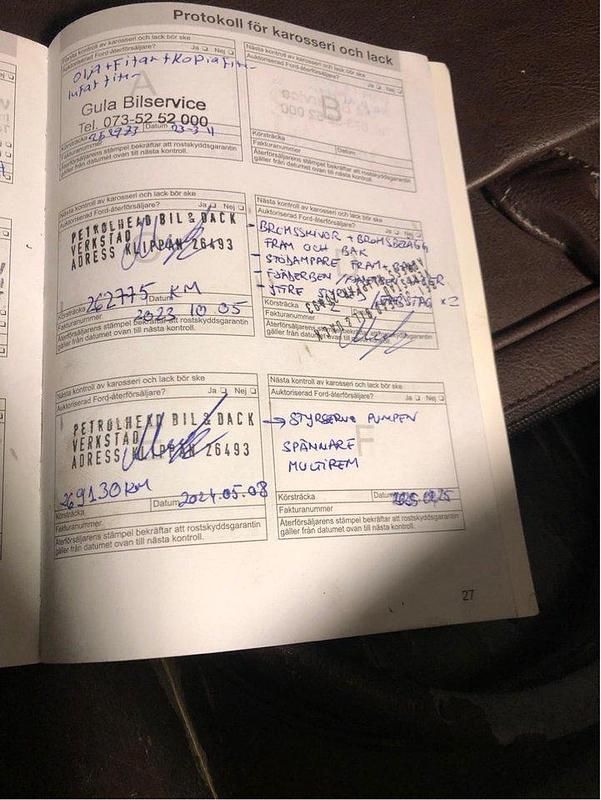 Protokoll för karosseri och lack
Nästa kontroll av karosseri och lack bör ske
Auktoriserad Ford-återförsäljare? Ja Nej
A
Gula Bilservice
Tel. 073-52 52 000
Körsträcka Datum
Fakturanummer
Återförsäljarens stämpel bekräftar att rostskyddsgarantin
gäller från datumet ovan till nästa kontroll.
Nästa kontroll av karosseri och lack bör ske
Auktoriserad Ford-återförsäljare? Ja Nej
B
Körsträcka Datum
Fakturanummer
Återförsäljarens stämpel bekräftar att rostskyddsgarantin
gäller från datumet ovan till nästa kontroll.
Nästa kontroll av karosseri och lack bör ske
Auktoriserad Ford-återförsäljare? Ja Nej
PETROLHEAD BIL & DÄCK
VERKSTAD
ADRESS KLIPPAN 26493
262775 KM
Körsträcka Datum
2023 10 05
Fakturanummer
Återförsäljarens stämpel bekräftar att rostskyddsgarantin
gäller från datumet ovan till nästa kontroll.
Nästa kontroll av karosseri och lack bör ske
Auktoriserad Ford-återförsäljare? Ja Nej
- BROMSSKIVOR + BROMSBELÄGG
FRAM OCH BAK
- STÖDÄMPARE FRAM + BAK
- FJÄDERBEN
- YTTRE
Körsträcka
Fakturanummer
Återförsäljarens stämpel bekräftar att rostskyddsgarantin
gäller från datumet ovan till nästa kontroll.
Nästa kontroll av karosseri och lack bör ske
Auktoriserad Ford-återförsäljare? Ja Nej
PETROLHEAD BIL & DÄCK
VERKSTAD
ADRESS KLIPPAN 26493
269130 KM
Körsträcka Datum 2024.05.08
Fakturanummer
Återförsäljarens stämpel bekräftar att rostskyddsgarantin
gäller från datumet ovan till nästa kontroll.
Nästa kontroll av karosseri och lack bör ske
Auktoriserad Ford-återförsäljare? Ja Nej
→ STYRSERVO PUMPEN
F
SPÄNNARE
MULTIREM
Körsträcka Datum
Fakturanummer
Återförsäljarens stämpel bekräftar att rostskyddsgarantin
gäller från datumet ovan till nästa kontroll.
27